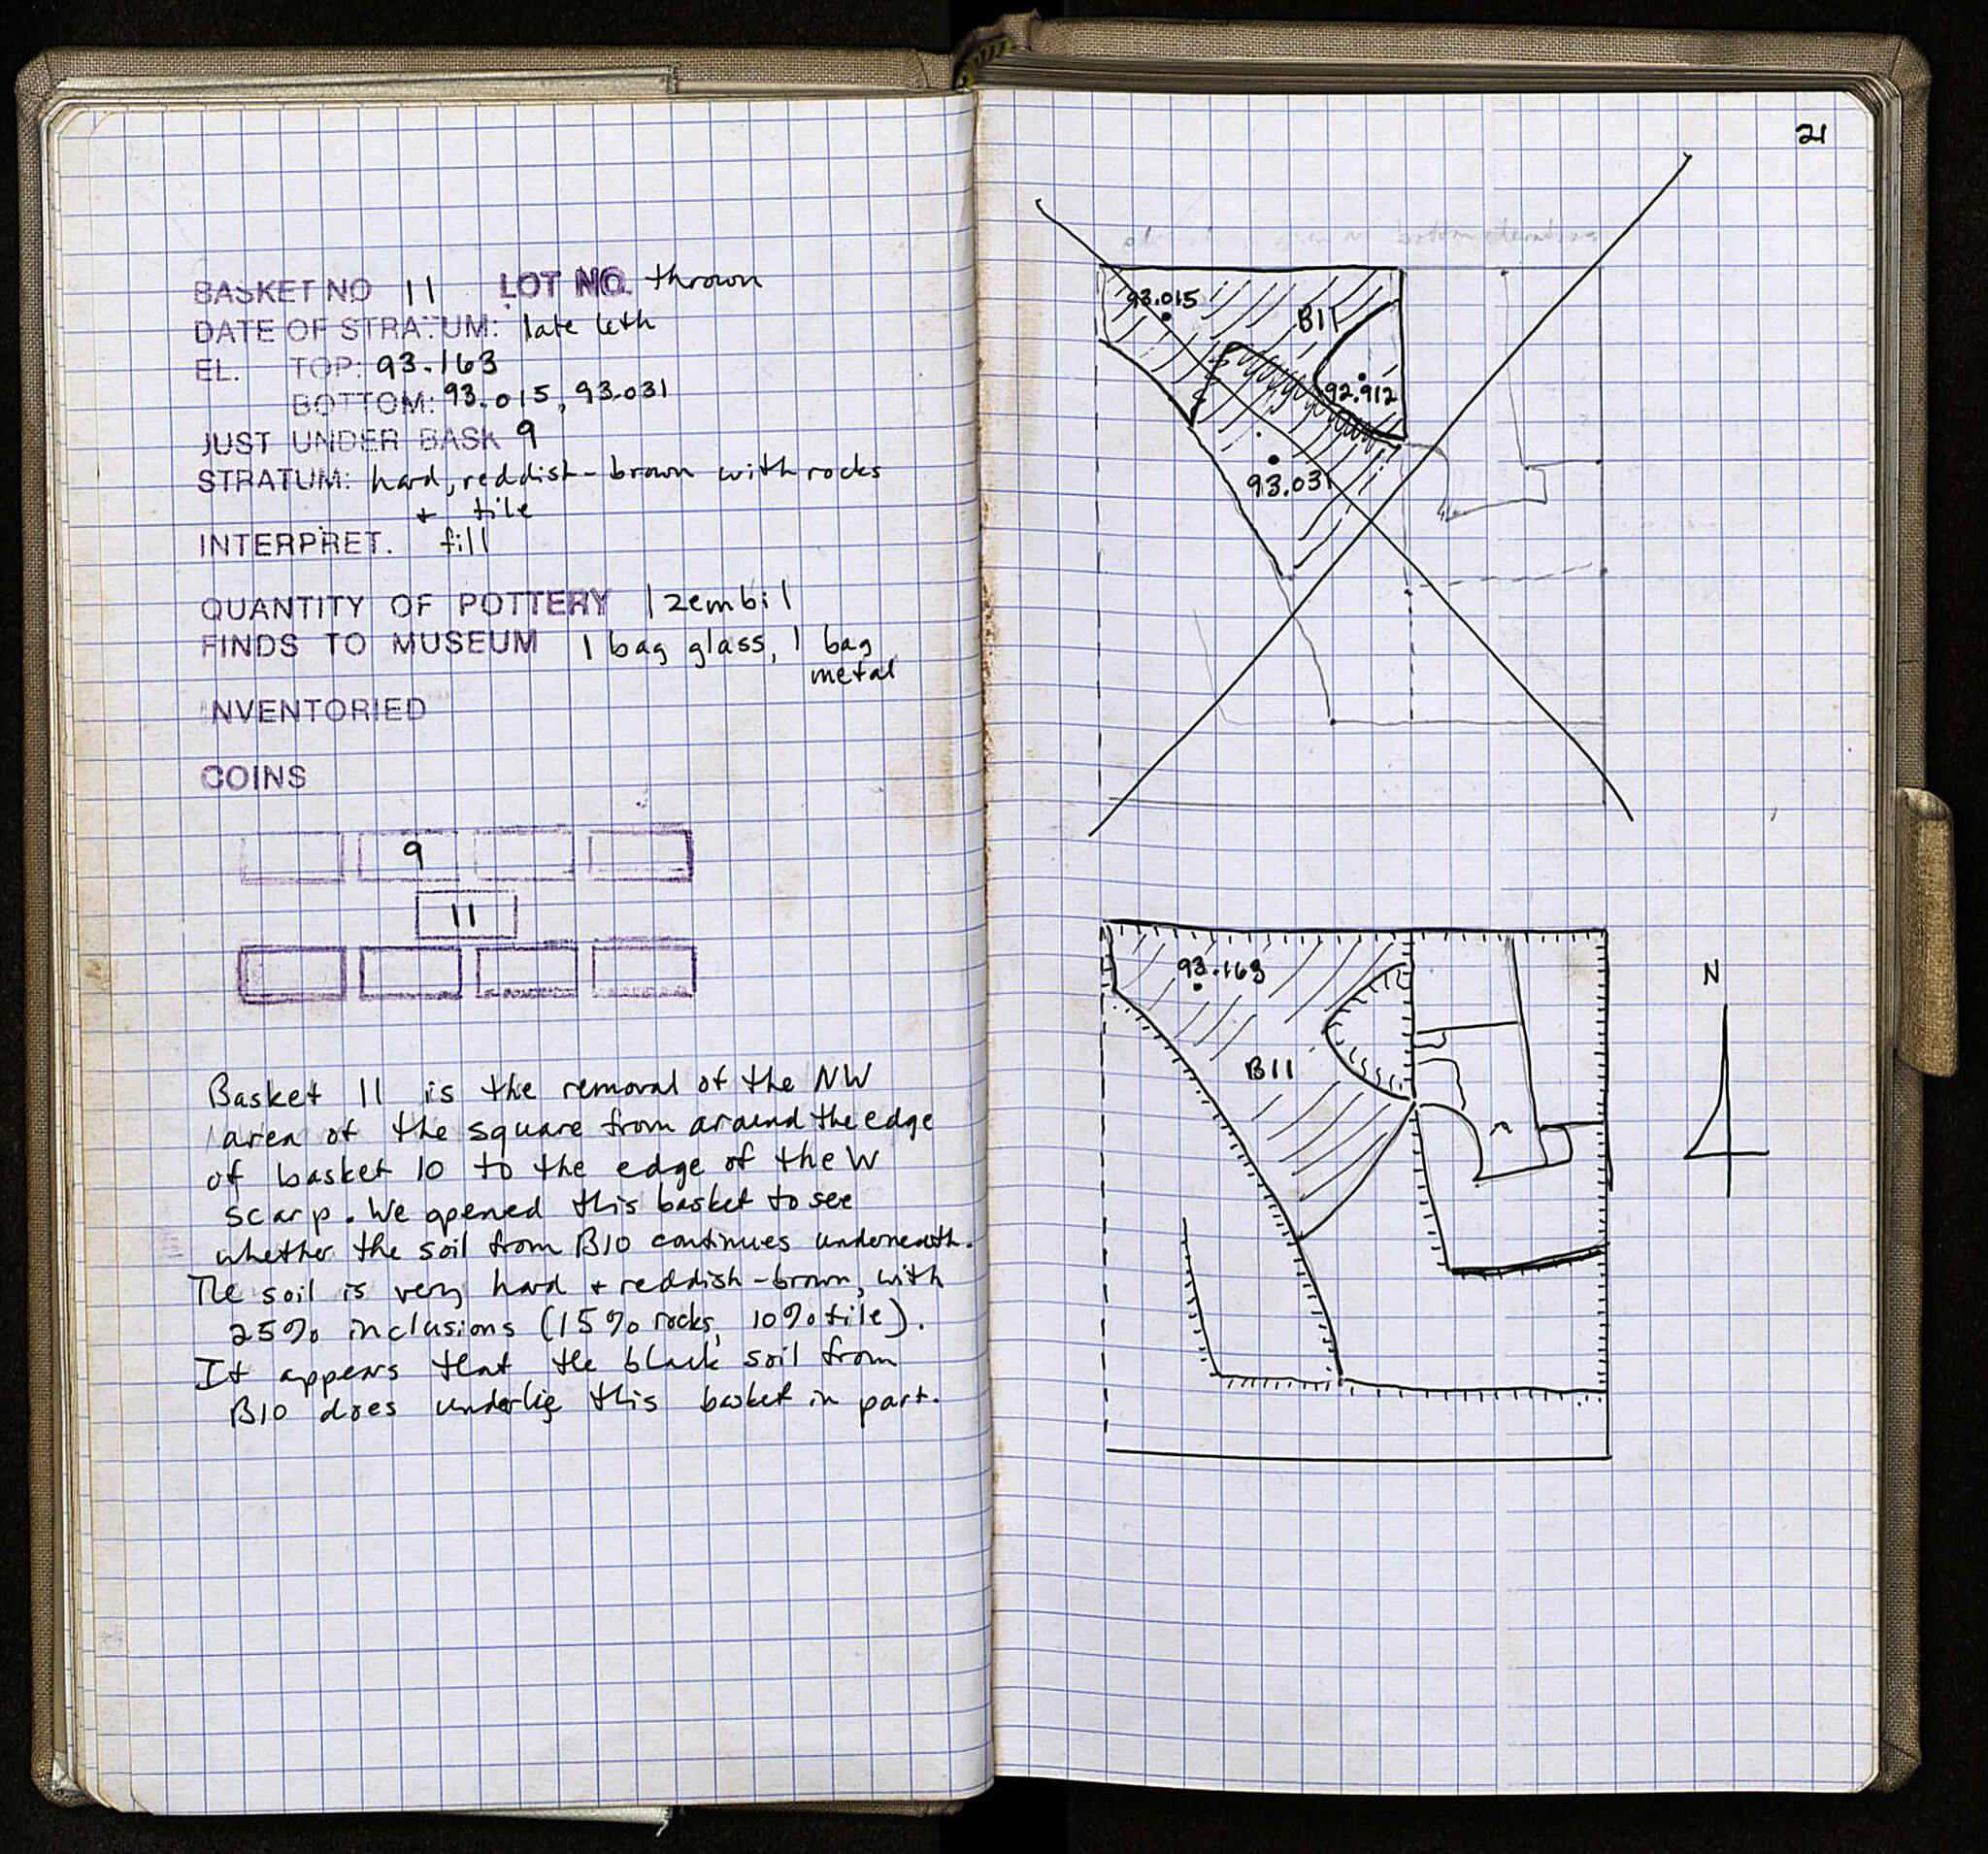 BASKET NO 11 LOT NO. thrown
DATE OF STRATUM: late
EL. TOP: 93.163
BOTTOM: 93.015, 93.031
JUST UNDER BASK 9
STRATUM: hard, reddish-brown with rocks
+ tile
INTERPRET. fill
QUANTITY OF POTTERY 1 zembil
FINDS TO MUSEUM 1 bag glass, 1 bag
metal
INVENTORIED
COINS
9
11
Basket 11 is the removal of the NW
area of the square from around the edge
of basket 10 to the edge of the W
scarp. We opened this basket to see
whether the soil from B10 continues underneath.
The soil is very hard + reddish-brown, with
25% inclusions (15% rocks, 10% tile).
It appears that the black soil from
B10 does underlie this basket in part.
21
bottom elevations
93.015
B11
92.912
93.031
93.163
B11
N